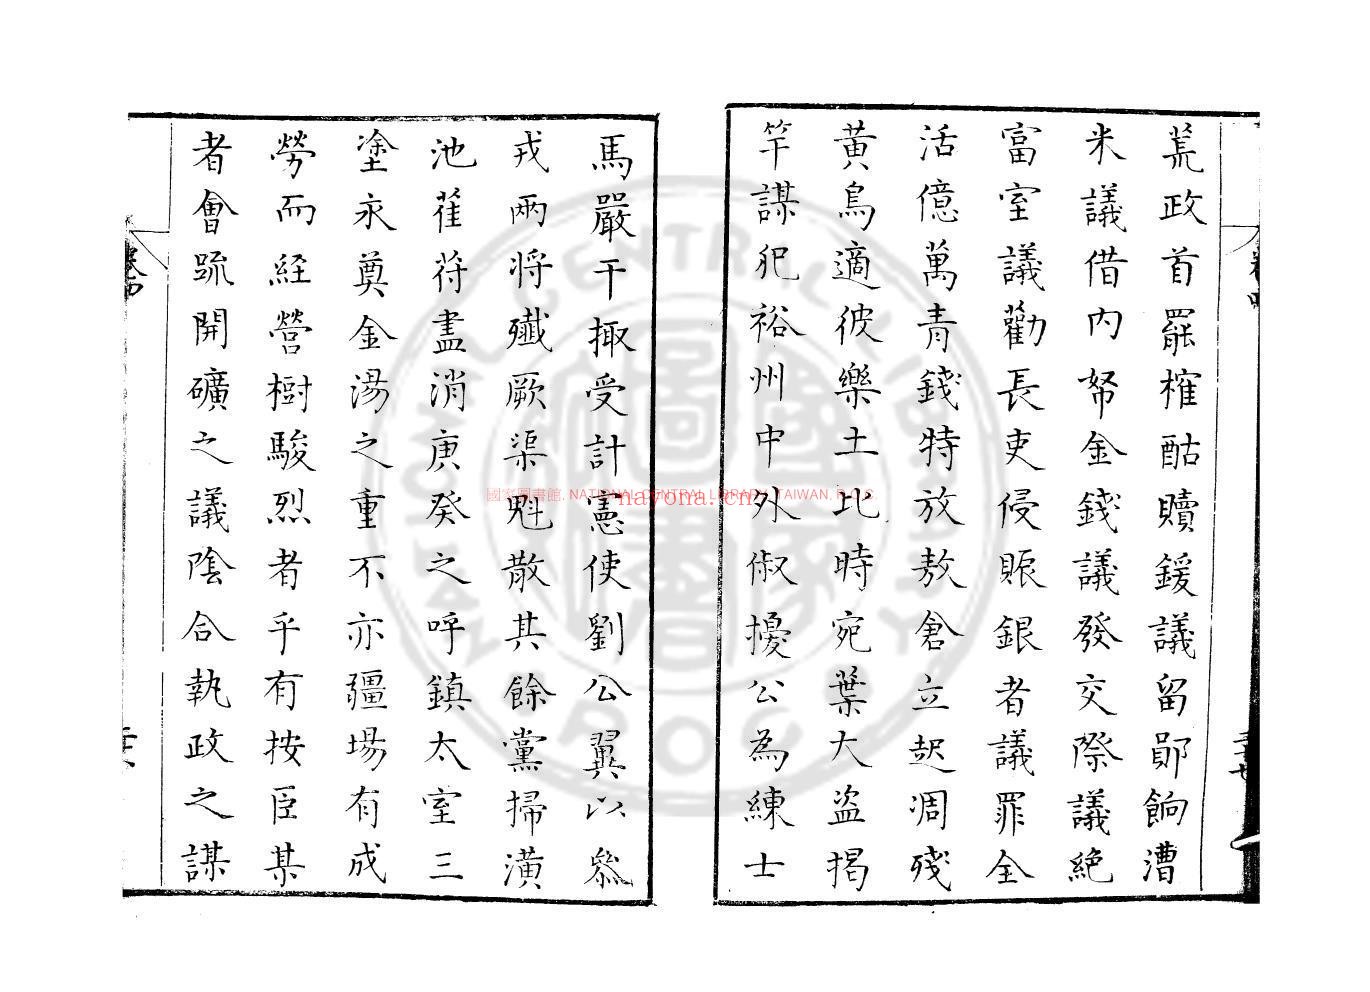 荒政首罷榷酤贖鍰議留鄖餉漕
米議借内帑金錢議發交際議絶
富室議勸長吏侵賑銀者議罪全
活億萬青錢特放敖倉立起凋殘
黃鳥適彼樂土比時宛葉大盜揭
竿謀犯裕州中外俶擾公為練士
馬嚴干掫受計憲使劉公翼以叅
戎兩将殲厥渠魁散其餘黨掃潢
池萑苻盡消庚癸之呼鎮太室三
塗永奠金湯之重不亦疆場有成
勞而経營樹駿烈者乎有按臣某
者會疏開礦之議陰合執政之謀
國家圖書館, NATIONAL CENTRAL LIBRARY, TAIWAN, R.O.C
nayona.cn